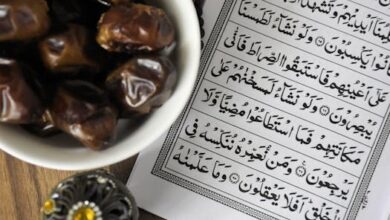 اَيْدِيْهِمْ وَتَشْهَدُ
يَكْسِبُوْنَ ۝ وَلَوْ نَشَآءُ لَطَمَسْنَا
عَلٰٓى اَعْيُنِهِمْ فَاسْتَبَقُوا الصِّرَاطَ فَاَنّٰى
يُبْصِرُوْنَ ۝ وَلَوْ نَشَآءُ لَمَسَخْنٰهُمْ عَلٰى
مَكَانَتِهِمْ فَمَا اسْتَطَاعُوْا مُضِيًّا وَّلَا
يَرْجِعُوْنَ ۝ وَمَنْ نُّعَمِّرْهُ نُنَكِّسْهُ فِى
الْخَلْقِ اَفَلَا يَعْقِلُوْنَ ۝ وَمَا عَلَّمْنٰهُ